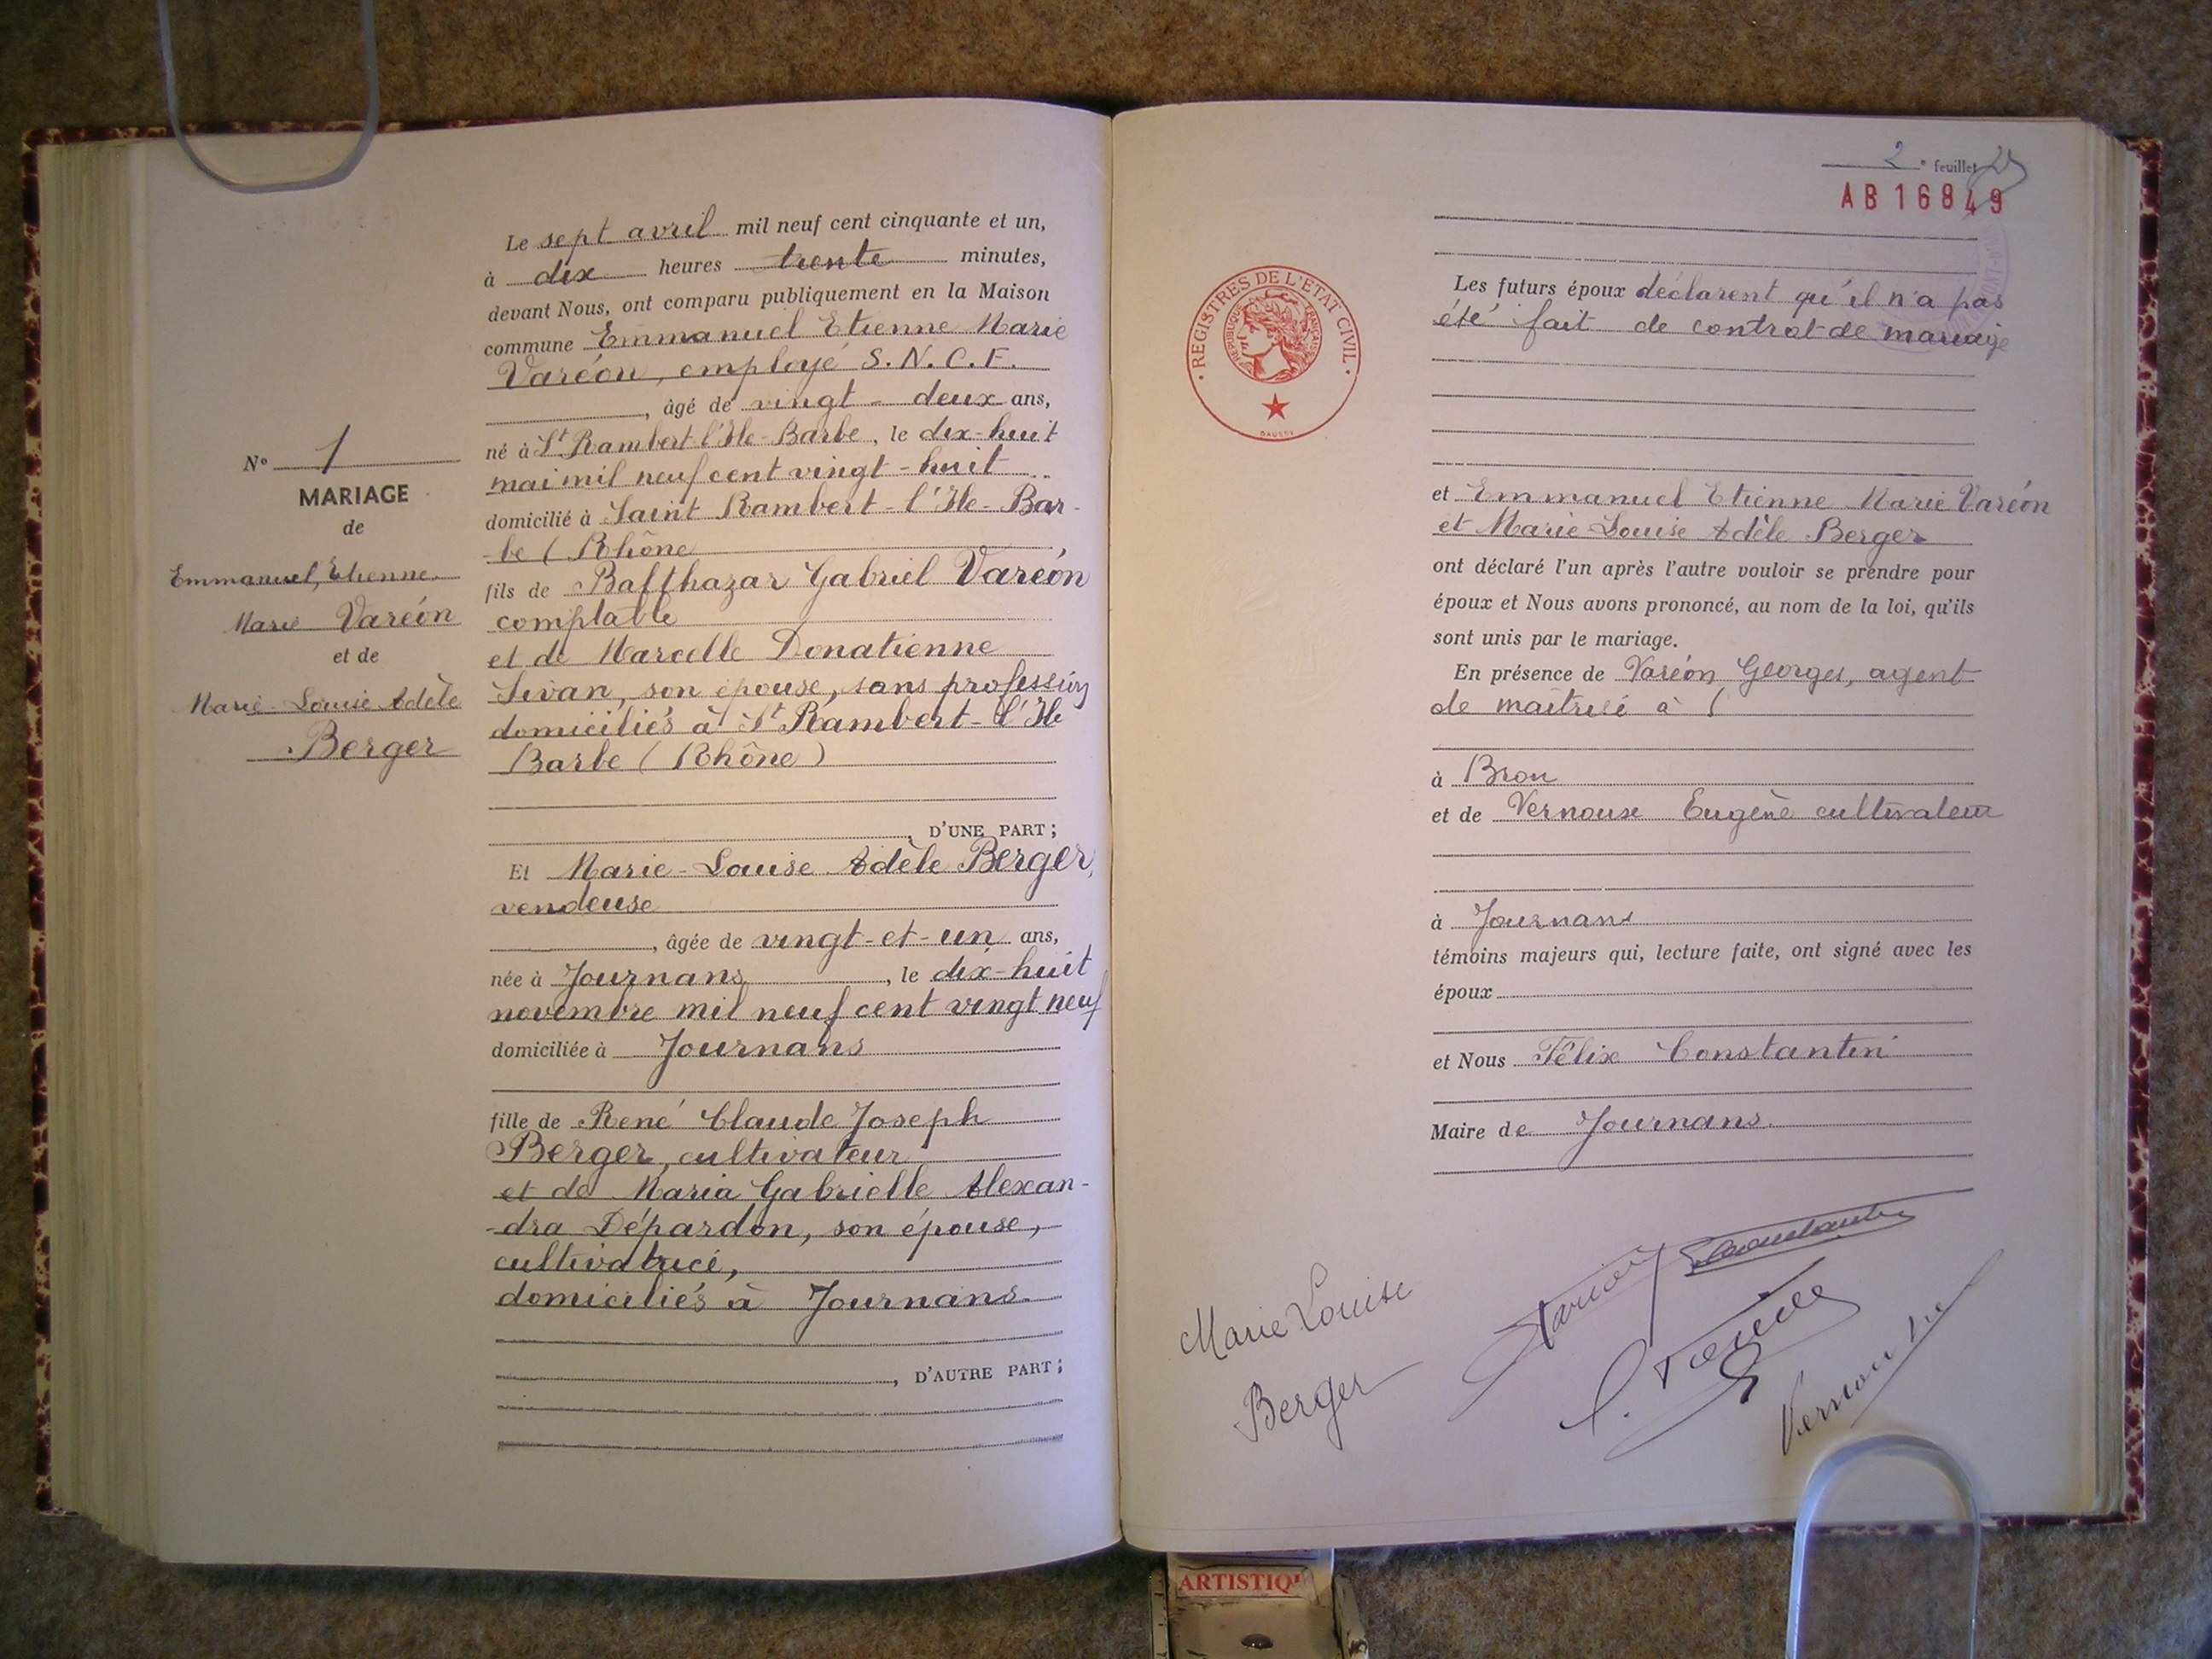 Le sept avril mil neuf cent cinquante et un,
à dix heures trente minutes,
devant Nous, ont comparu publiquement en la Maison
commune Emmanuel Etienne Marie
Varéon, employé S.N.C.F.
, âgé de vingt-deux ans,
né à St Rambert-l'Ile-Barbe, le dix-huit
mai mil neuf cent vingt-huit
domicilié à Saint Rambert-l'Ile-Bar-
-be (Rhône
fils de Balthazar Gabriel Varéon
comptable
et de Marcelle Donatienne
Sivan, son épouse, sans profession
domiciliés à St Rambert-l'Ile
Barbe (Rhône)
, D'UNE PART;
Et Marie-Louise Adèle Berger,
vendeuse
, âgée de vingt-et-un ans,
née à Journans, le dix-huit
novembre mil neuf cent vingt neuf
domiciliée à Journans
fille de René Claude Joseph
Berger, cultivateur
et de Maria Gabrielle Alexan-
-dra Dépardon, son épouse,
cultivatrice,
domiciliés à Journans.
, D'AUTRE PART;
N° 1
MARIAGE
de
Emmanuel, Etienne
Marie Varéon
et de
Marie-Louise Adèle
Berger
2e feuillet
AB 16849
REGISTRES DE L'ETAT CIVIL
REPUBLIQUE FRANCAISE
Les futurs époux déclarent qu'il n'a pas
été fait de contrat de mariage
et Emmanuel Etienne Marie Varéon
et Marie-Louise Adèle Berger
ont déclaré l'un après l'autre vouloir se prendre pour
époux et Nous avons prononcé, au nom de la loi, qu'ils
sont unis par le mariage.
En présence de Varéon Georges, agent
de maîtrise à (
à Bron
et de Vernoux Eugène cultivateur
à Journans
témoins majeurs qui, lecture faite, ont signé avec les
époux
et Nous Félix Constantin
Maire de Journans.
Marie Louise
Berger
ARTISTIQ